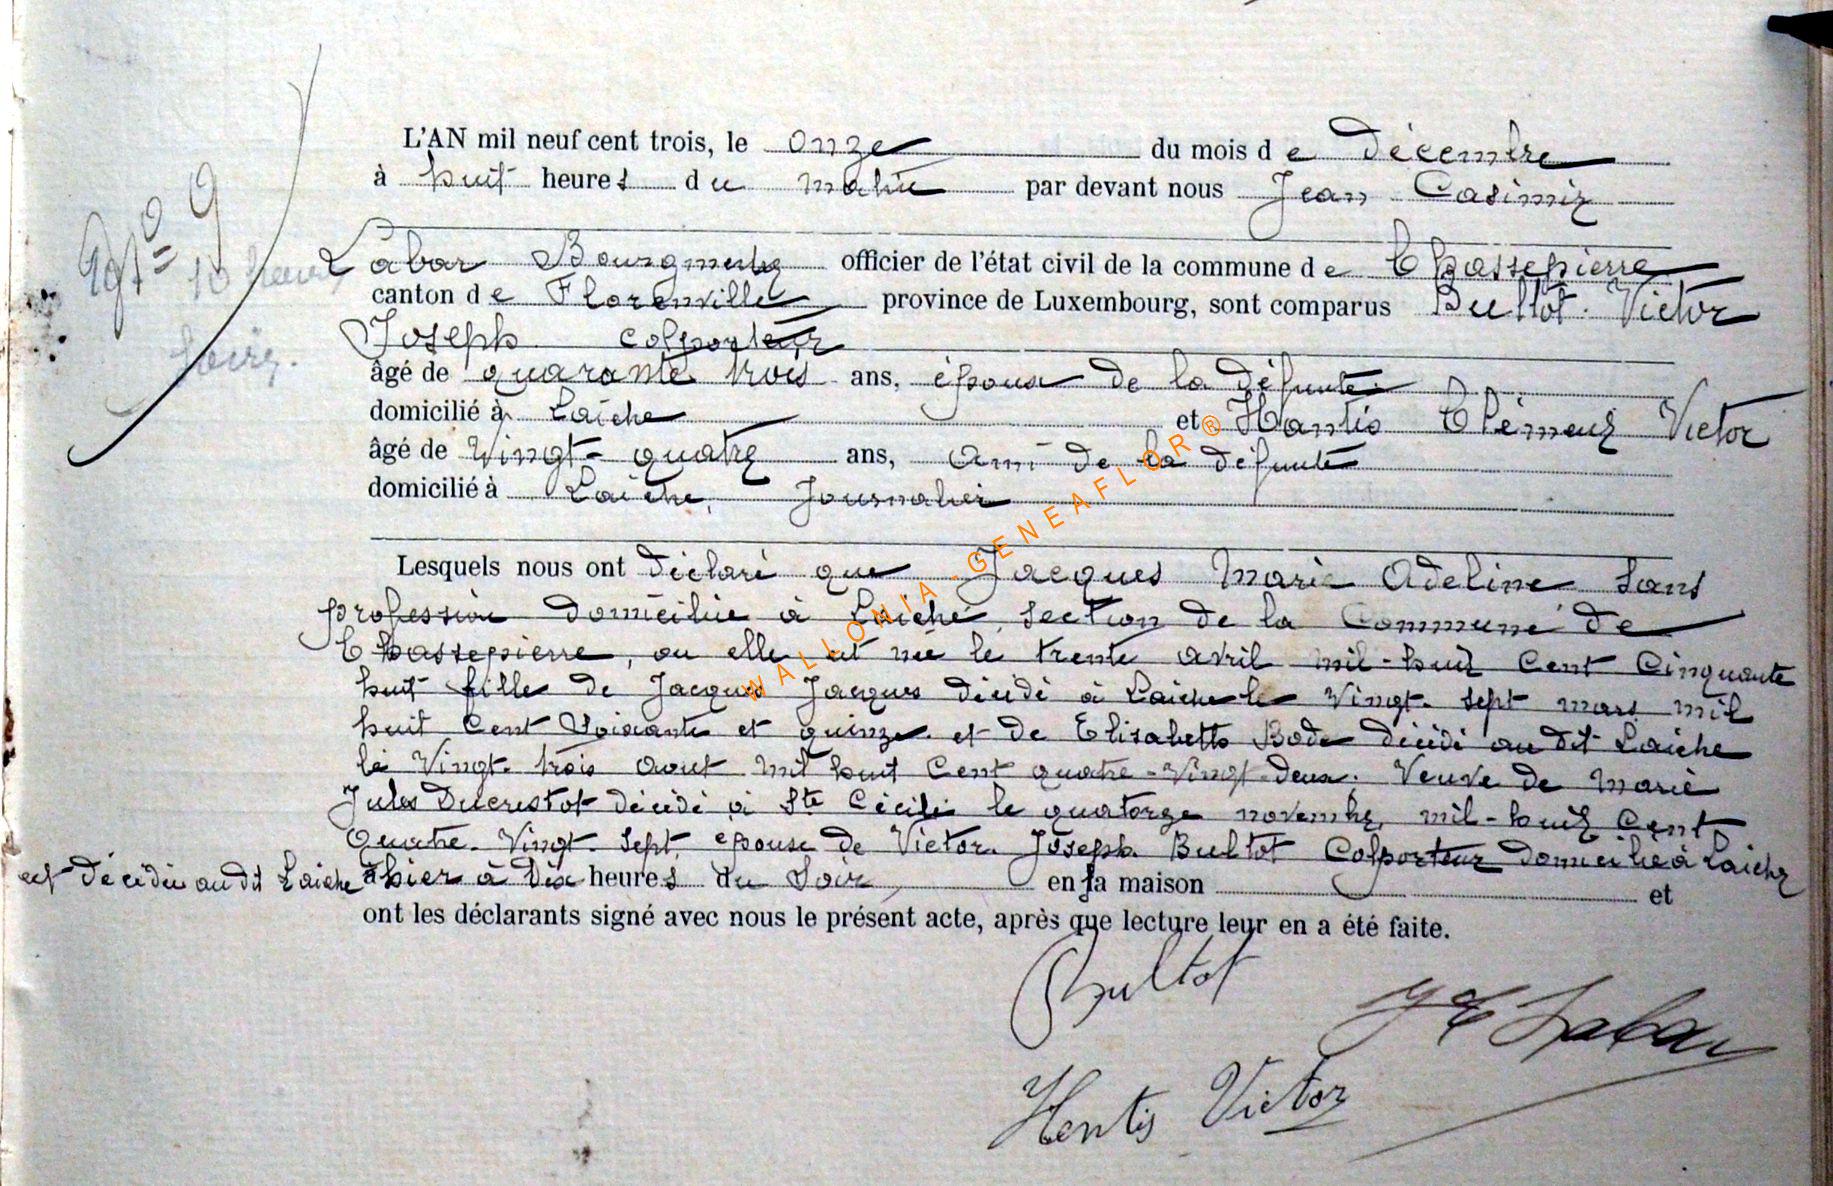 N° 9
10 heures
soir.
L'AN mil neuf cent trois, le onze du mois de décembre
à huit heures du matin par devant nous Jean Casimir
Labar Bourgmestre officier de l'état civil de la commune de Chassepierre
canton de Florenville province de Luxembourg, sont comparus Bultot Victor
Joseph colporteur
âgé de quarante trois ans, époux de la défunte
domicilié à Laiche et Hantis Clément Victor
âgé de Vingt-quatre ans, ami de la défunte
domicilié à Laiche, Journalier
Lesquels nous ont déclaré que Jacques Marie Adeline sans
profession domiciliée à Laiche, section de la Commune de
Chassepierre, ou elle est née le trente avril mil-huit cent cinquante
huit fille de Jacques Jacques décédé à Laiche le Vingt-sept mars mil
huit cent soixante et quinze et de Elisabeth Bode décédé au dit Laiche
le Vingt-trois aout mil huit cent quatre-Vingt-deux. Veuve de Marie
Jules Ducrestot décédé à Ste Cécile le quatorze novembre mil-huit cent
quatre-Vingt-sept, epouse de Victor Joseph Bultot Colporteur domicilié à Laiche
est décédée au dit Laiche hier à dix heures du soir en sa maison et
ont les déclarants signé avec nous le présent acte, après que lecture leur en a été faite.
Bultot
JC Labar
Hentis Victor
WALLONIA-GENEAFLOR®